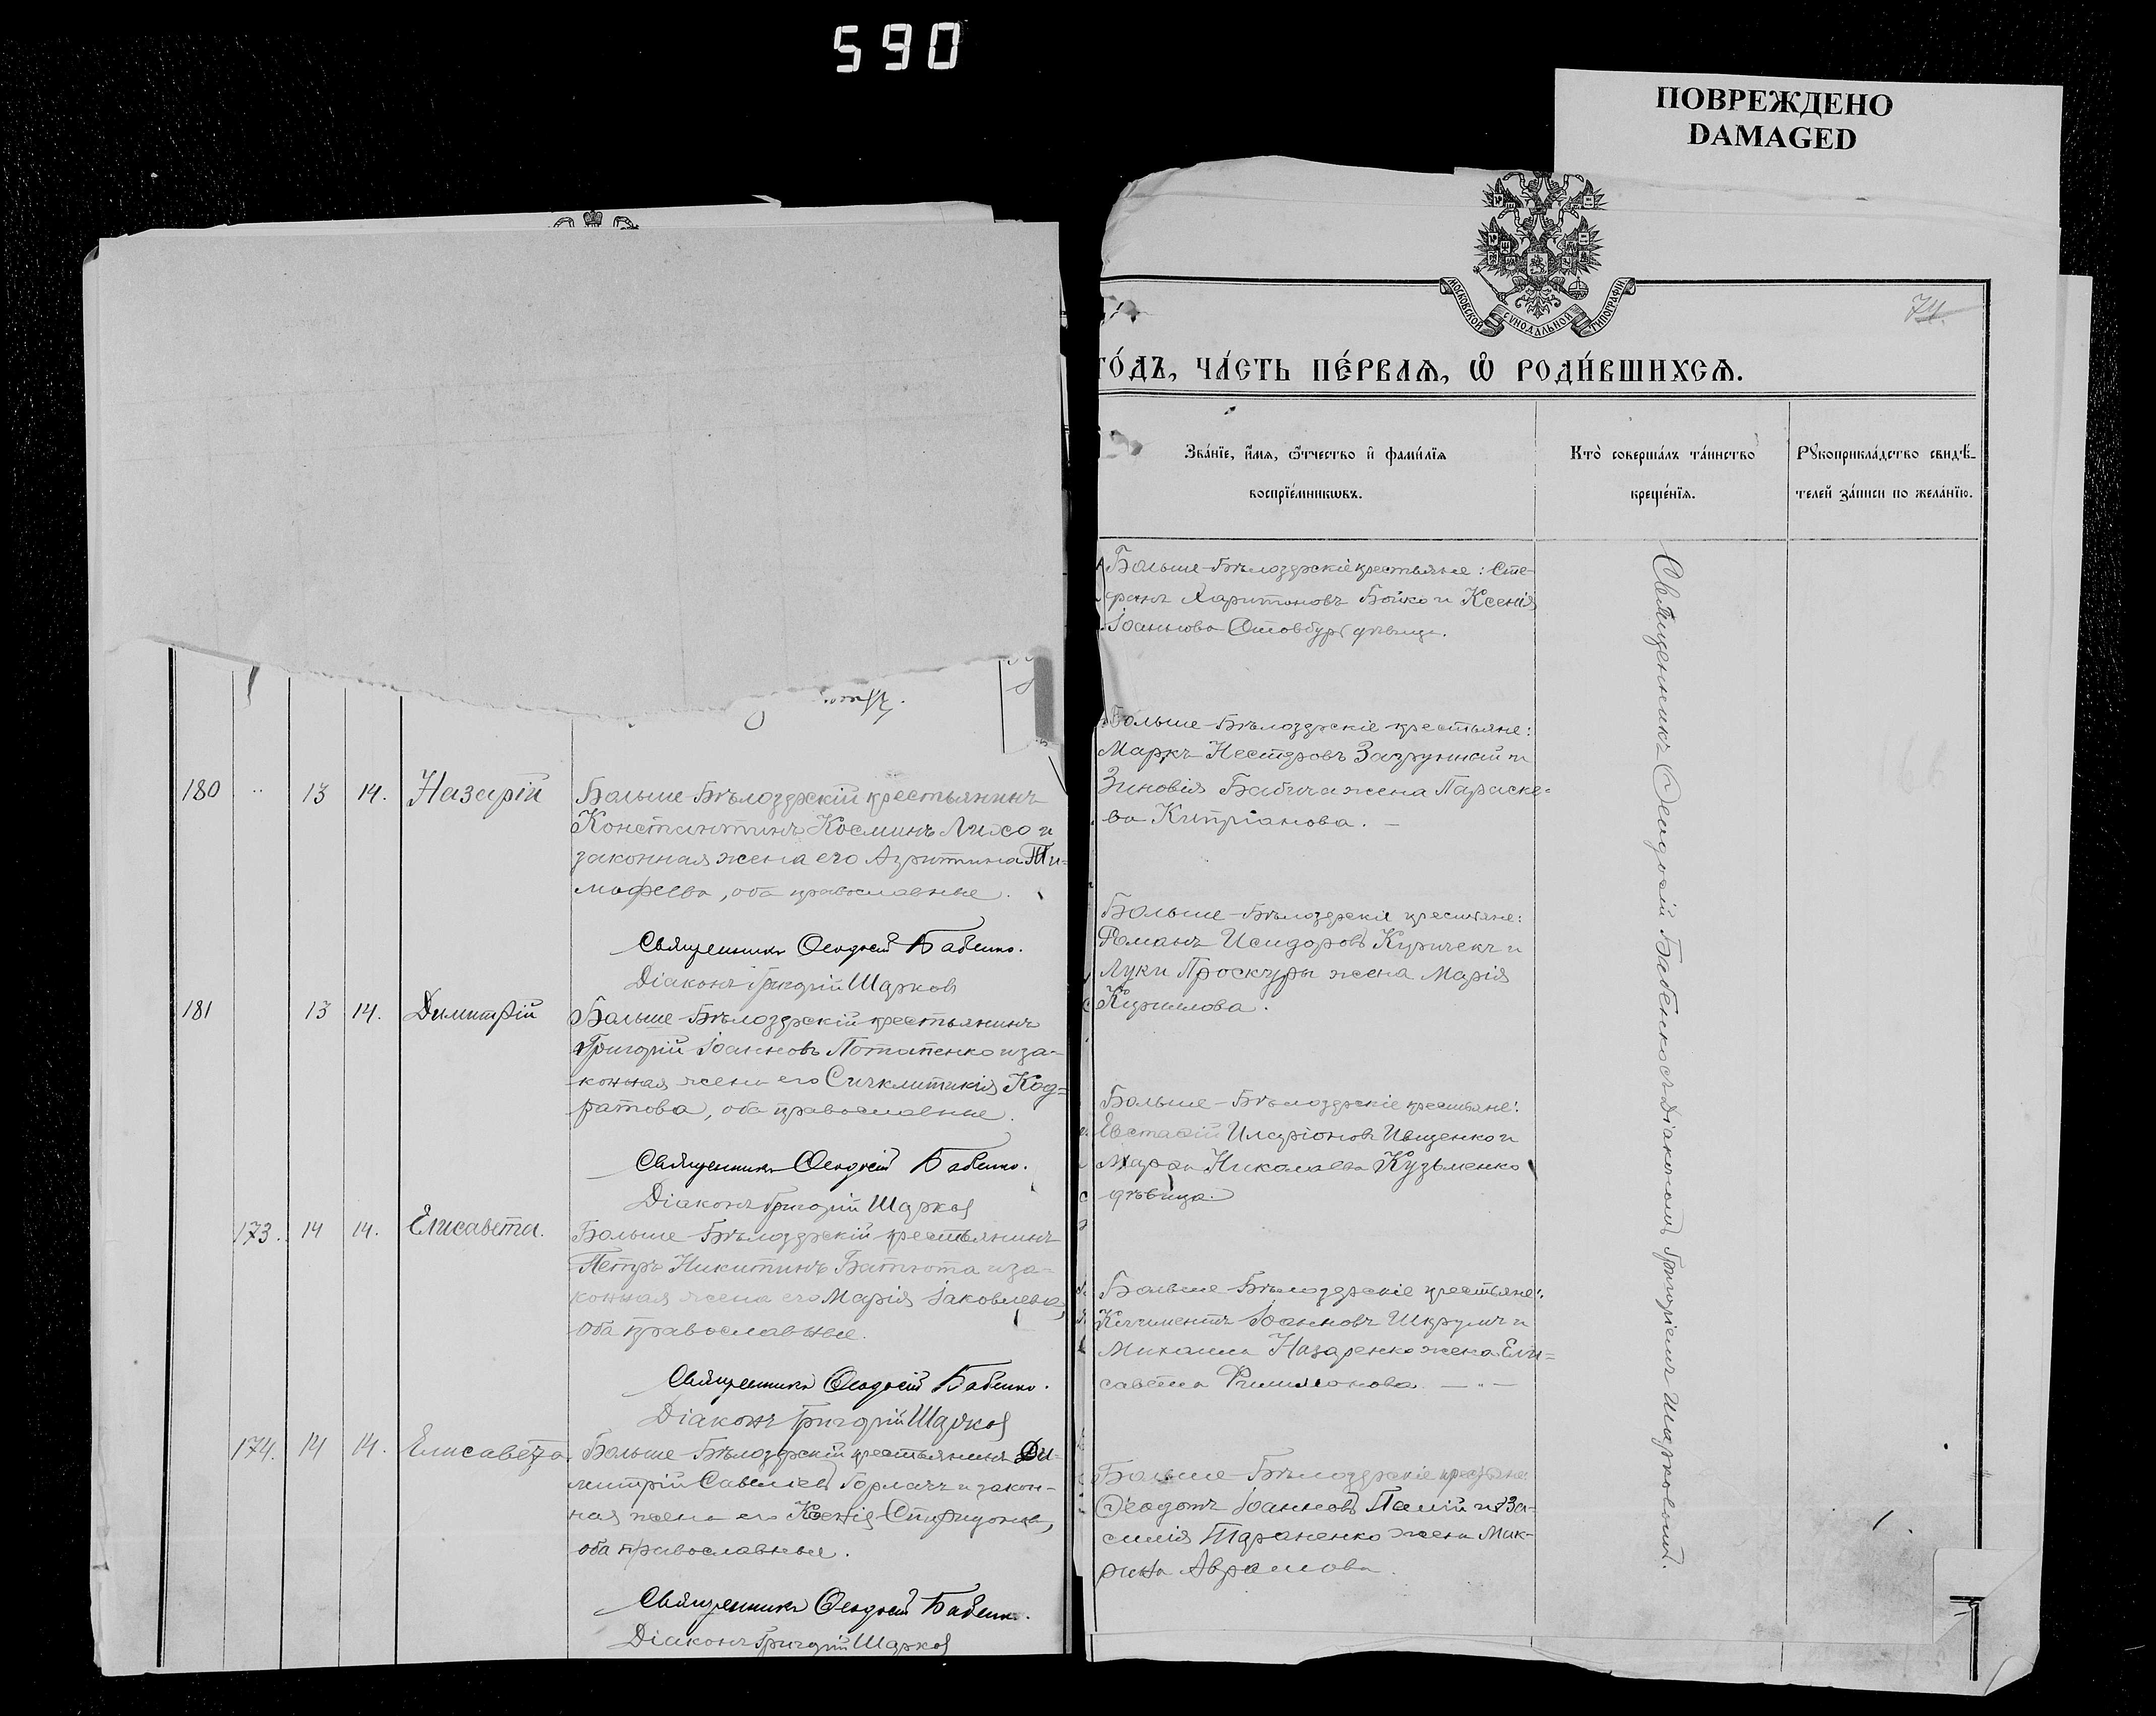 590
ПОВРЕЖДЕНО
DAMAGED
МОСКОВСКОЙ СѴНОДАЛЬНОЙ ТИПОГРАФІИ
74.
180 13 14. Назарій
Больше-Бѣлозерскій крестьянинъ
Константинъ Косминъ Лихо и
законная жена его Агриппина Ти=
мофеева, оба православные.
Священникъ Ѳеодосій Бабенко.
Діаконъ Григорій Шарков
181 13 14. Димитрій
Больше-Бѣлозерскій крестьянинъ
Григорій Іоанновъ Потапенко и за-
конная жена его Сигклитикія Код=
ратова, оба православные.
Священникъ Ѳеодосій Бабенко.
Діаконъ Григорій Шарков
173. 14 14. Елисавета.
Больше-Бѣлозерскій крестьянинъ
Петръ Никитинъ Батюта и за-
конная жена его Марія Іаковлева,
оба православные.
Священникъ Ѳеодосій Бабенко.
Діаконъ Григорій Шарков
174. 14 14. Елисавета
Больше-Бѣлозерскій крестьянинъ Ди=
митрій Савельевъ Горлачъ и закон-
ная жена его Ксенія Спиридонова,
оба православные.
Священникъ Ѳеодосій Бабенко.
Діаконъ Григорій Шарков
го́дъ, ча́сть пе́рваѧ, ѡ҆ роди́вшихсѧ.
Зва́нїе, и҆́мѧ, ѻ҆́тчество и҆ фами́лїѧ
воспрїе́мникѡвъ.
Кто̀ соверша́лъ та́инство
креще́нїѧ.
Рꙋкоприкла́дство свидѣ́-
телей за́писи по жела́нїю.
Больше-Бѣлозерскіе крестьяне: Сте-
фанъ Харитоновъ Бойко и Ксенія
Іоаннова дѣвица.
Больше-Бѣлозерскіе крестьяне:
Маркъ Несторовъ Загрунный и
Зиновія Бабича жена Параске-
ва Кипріанова. —
Больше-Бѣлозерскіе крестьяне:
Романъ Исидоровъ и
Луки Проскуры жена Марія
Кириллова.
Больше-Бѣлозерскіе крестьяне:
Евстафій Иларіоновъ Ищенко и
Марфа Николаева Кузьменко
дѣвица.
Больше-Бѣлозерскіе крестьяне:
Климентъ Іоанновъ и
Михаила Назаренко жена Ели=
савета Филимонова —"—
Больше-Бѣлозерскіе крестьяне
Ѳеодотъ Іоанновъ Палій и Ва-
силія Тараненко жена Мак-
рина Авраамова.
Священникъ Ѳеодосій Бабенко съ Діакономъ Григоріемъ Шарковымъ.